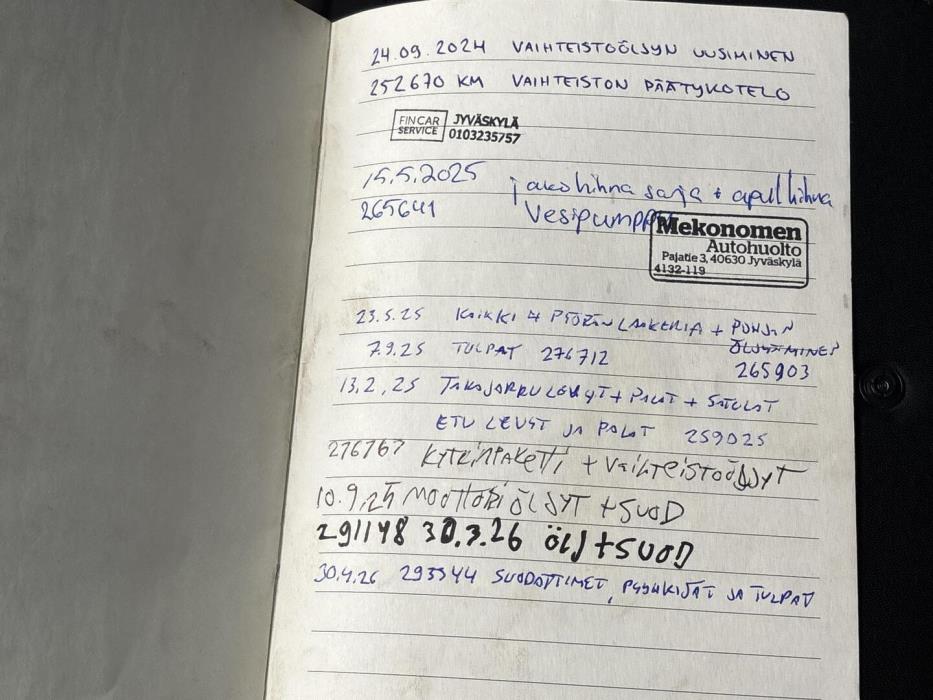 24.09.2024 VAIHTEISTOÖLJYN UUSIMINEN
252670 KM VAIHTEISTON PÄÄTYKOTELO
FIN CAR SERVICE JYVÄSKYLÄ 0103235757
15.5.2025 jakohihna sarja + apul hihna
265641 Vesipumppu
Mekonomen
Autohuolto
Pajatie 3, 40630 Jyväskylä
4132-119
23.5.25 KAIKKI 4 PYÖRÄN LAAKERIA + POHJAN
ÖLJYÄMINEN
7.9.25 TULPAT 276712
265903
13.2.25 TAKAJARRULEVYT + PALAT + SATULAT
ETU LEVYT JA PALAT 259025
276767 KYTKINPAKETTI + VAIHTEISTOÖLJYT
10.9.25 MOOTTORIÖLJYT + SUOD
291148 30.3.26 ÖLJ + SUOD
30.4.26 293344 SUODATTIMET, PYYHKIJÄT JA TULPAT